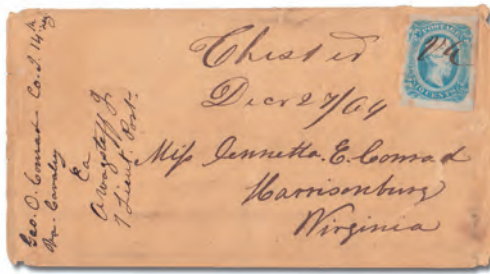 Chester
Decr 27/64
Miss Jennetta. E. Conrad
Harrisonburg
Virginia
Geo. O. Conrad Co. I. 14th
Va. Cavalry
Ex
A Wagstaff Jr
1 Lieut. Post-
POSTAGE